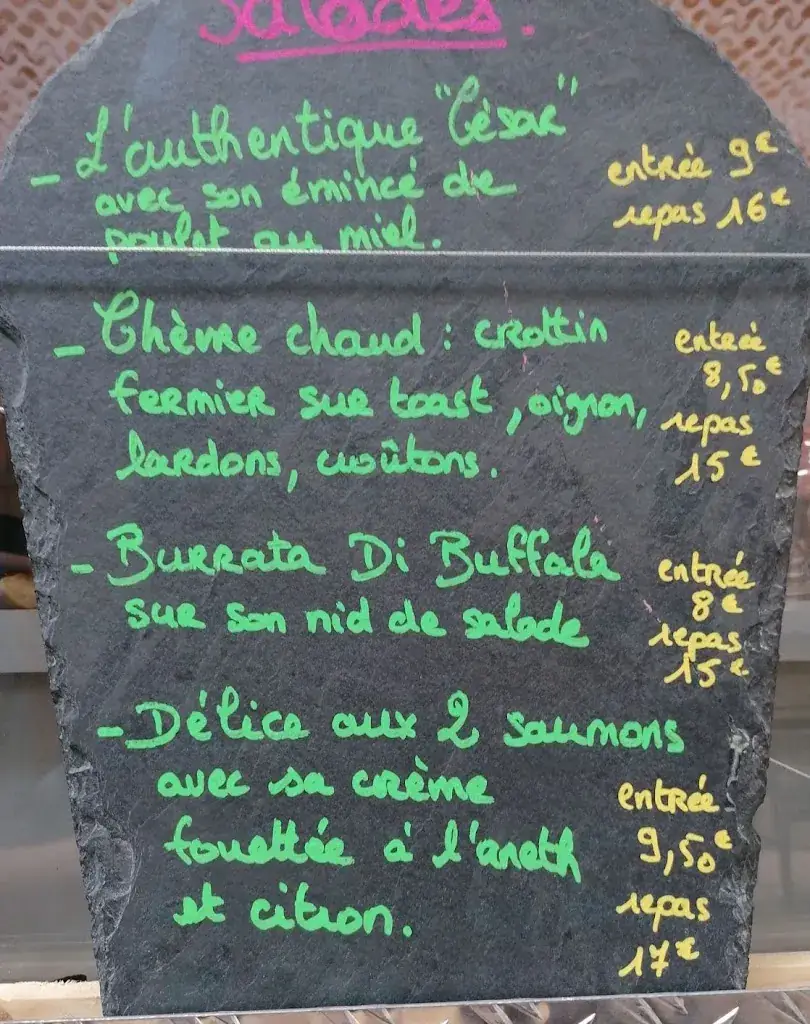 Salades.
- L'authentique "César"
avec son émincé de
poulet au miel.
entrée 9€
repas 16€
- Chèvre chaud : crottin
fermier sur toast, oignon,
lardons, croûtons.
entrée
8,50€
repas
15€
- Burrata Di Buffala
sur son nid de salade
entrée
8€
repas
15€
- Délice aux 2 saumons
avec sa crème
fouettée à l'aneth
et citron.
entrée
9,50€
repas
17€